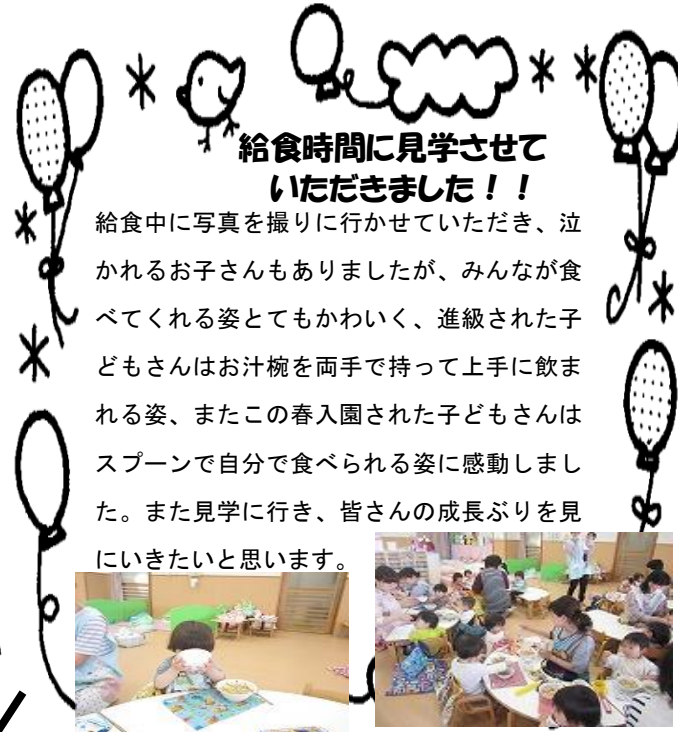 給食時間に見学させて
いただきました！！
給食中に写真を撮りに行かせていただき、泣
かれるお子さんもありましたが、みんなが食
べてくれる姿とてもかわいく、進級された子
どもさんはお汁椀を両手で持って上手に飲ま
れる姿、またこの春入園された子どもさんは
スプーンで自分で食べられる姿に感動しまし
た。また見学に行き、皆さんの成長ぶりを見
にいきたいと思います。